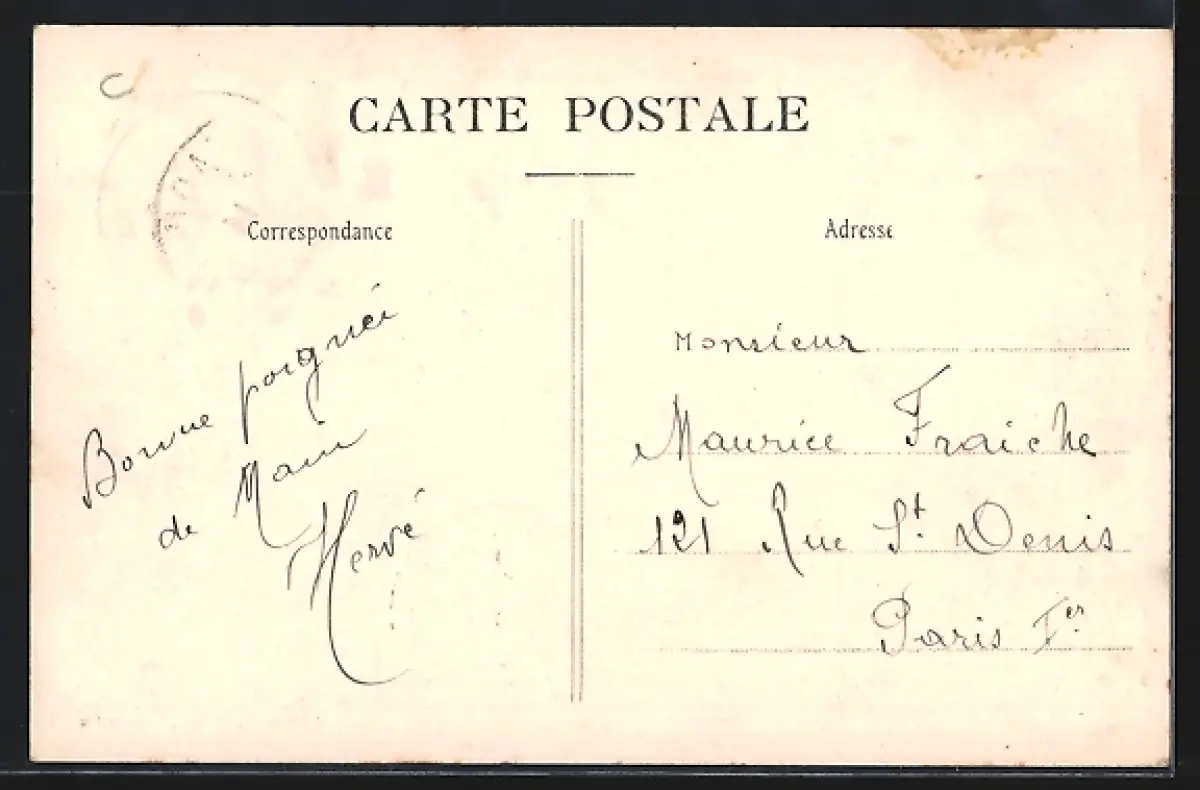 CARTE POSTALE
Correspondance
Adresse
Bonne poignée
de Main
Hervé
Monsieur
Maurice Fraiche
121 Rue St. Denis
Paris Ier